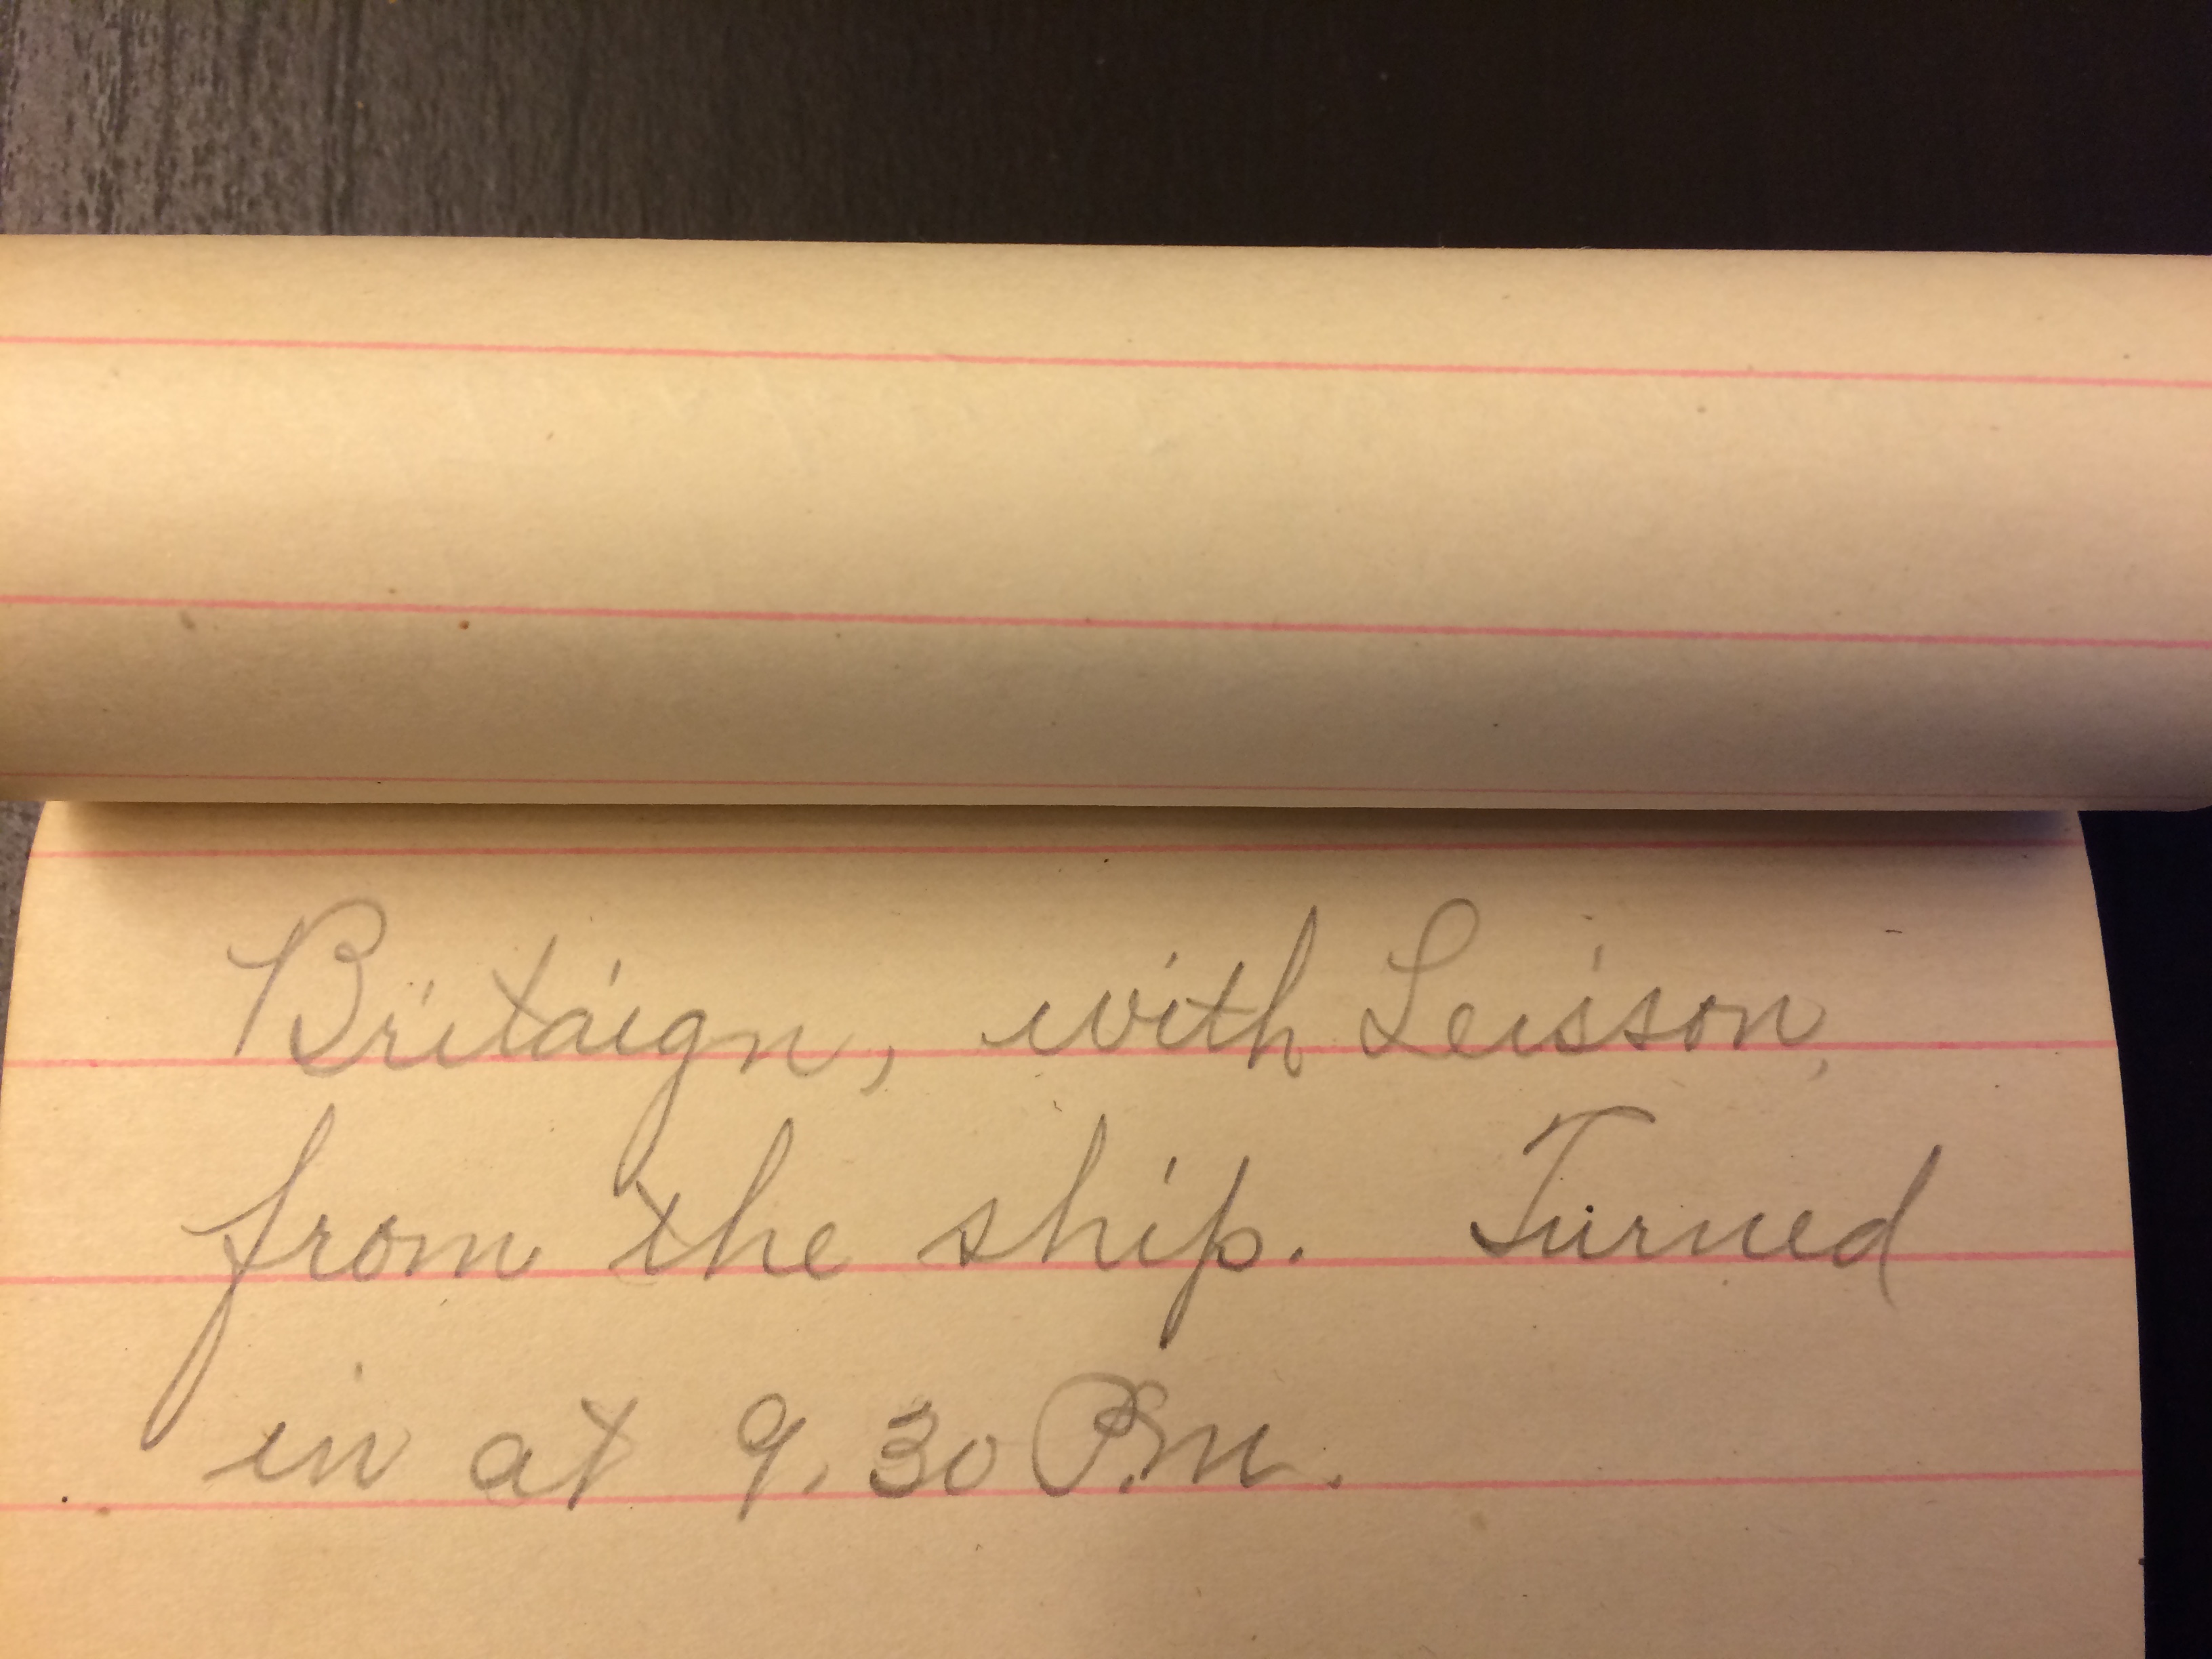 Britaign, with Leisson,
from the ship. Turned
in at 9.30 P.M.